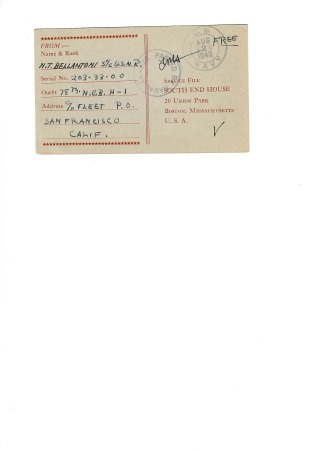 FROM:—
Name & Rank
N.T. BELLANTONI S/C U.S.N.R.
Serial No. 203-33-00
Outfit 78TH N.C.B. H-1
Address C/O FLEET P.O.
SAN FRANCISCO
CALIF.
FREE
AUG
2
1943
SERVICE FILE
SOUTH END HOUSE
20 UNION PARK
BOSTON, MASSACHUSETTS
U. S. A.